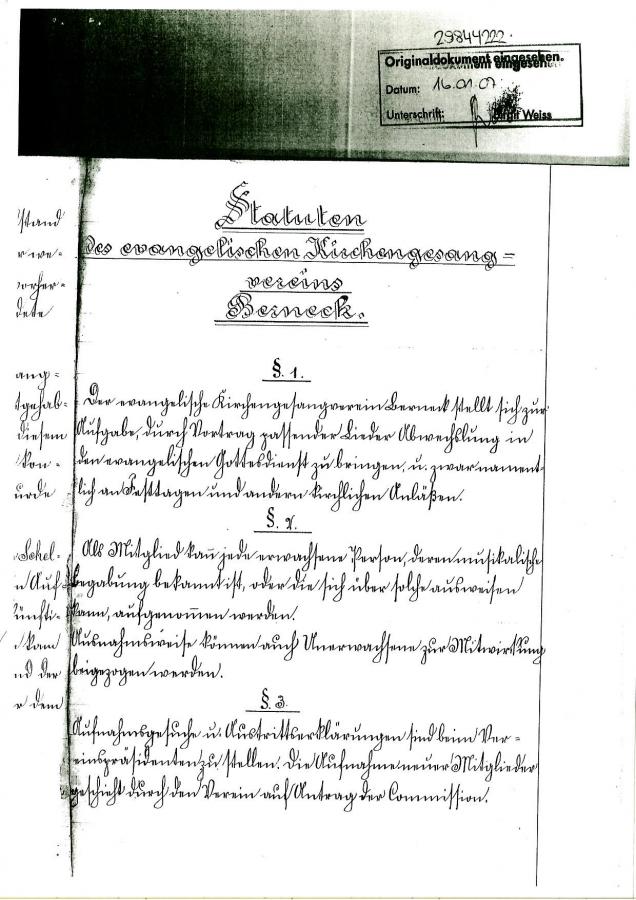 29844222.
Originaldokument eingesehen.
Datum: 16.01.07
Unterschrift: Weiss
Statuten
des evangelischen Kirchengesang=
vereins
Berneck.
§. 1.
Der evangelische Kirchengesangverein Berneck stellt sich zur
Aufgabe, durch Vortrag passender Lieder Abwechslung in
den evangelischen Gottesdienst zu bringen, u. zwar nament-
lich an Festtagen und andern kirchlichen Anläßen.
§. 2.
Als Mitglied kann jede erwachsene Person, deren musikalische
Begabung bekannt ist, oder die sich über solche ausweisen
kann, aufgenommen werden.
Ausnahmsweise können auch Unerwachsene zur Mitwirkung
beigezogen werden.
§. 3
Aufnahmsgesuche u. Austrittserklärungen sind beim Ver-
einspräsidenten zu stellen. Die Aufnahme neuer Mitglieder
geschieht durch den Verein auf Antrag der Commission.